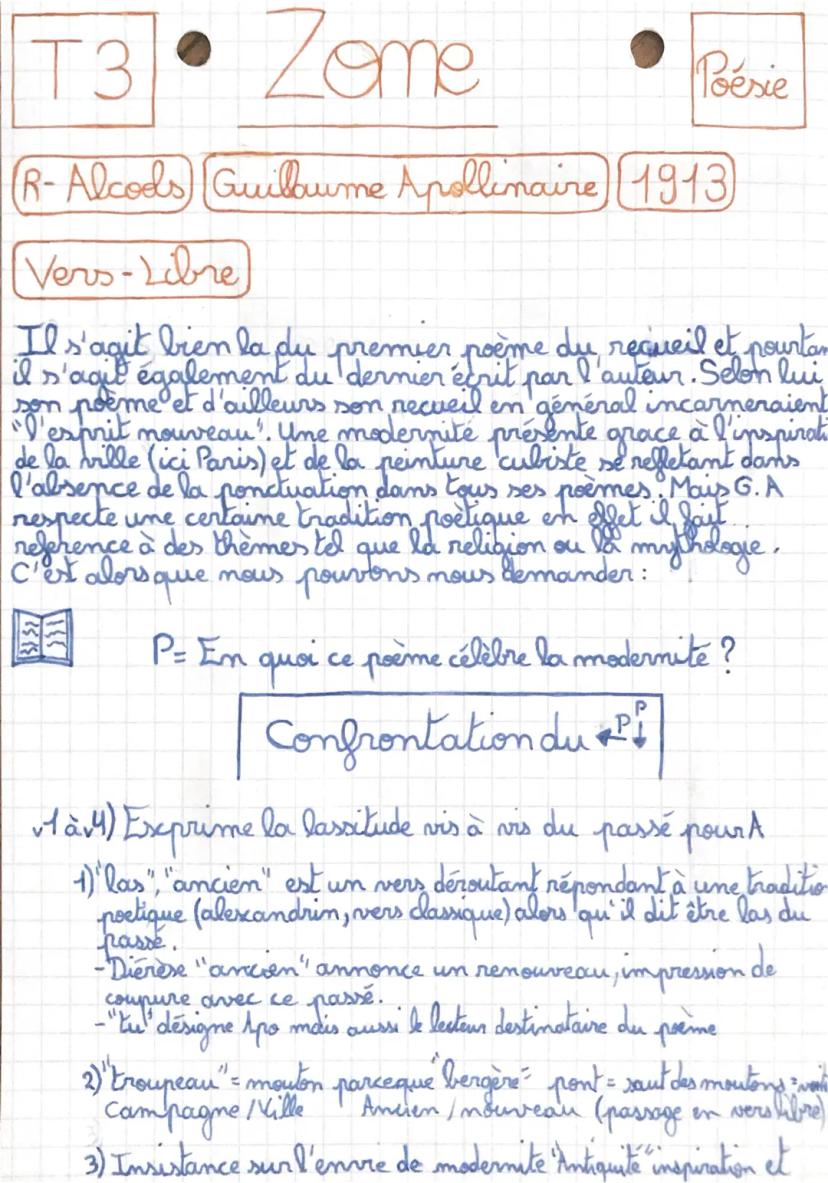 T3
Zone
Poésie
R- Alcools
Guillaume Apollinaire
1913
Vers-Libre
Il s'agit bien la du premier poème du recueil et pourtan
il s'agit également du dernier écrit par l'auteur. Selon lui
son poème et d'ailleurs son recueil en général incarneraient
"l'esprit nouveau". Une modernité présente grace à l'inspirati
de la ville (ici Paris) et de la peinture cubiste se refletant dans
l'absence de la ponctuation dans tous ses poèmes. Mais G.A
respecte une certaine tradition poètique en effet il fait
reference à des thèmes tel que la religion ou la mythologie.
C'est alors que nous pouvons nous demander :
P= En quoi ce poème célèbre la modernité ?
Confrontation du ←P P↓
v1 à v4) Exprime la lassitude vis à vis du passé pour A
1) "las", "ancien" est un vers déroutant répondant à une traditio
poetique (alexandrin, vers classique) alors qu'il dit être las du
passé.
- Diérèse "ancien" annonce un renouveau, impression de
coupure avec ce passé.
- "tu" désigne Apo mais aussi le lecteur destinataire du poème
2) "troupeau" = mouton parceque "bergère" pont = saut des moutons =
Campagne / Ville Ancien / nouveau (passage en vers libre)
3) Insistance sur l'envie de modernité "Antiquité" inspiration et